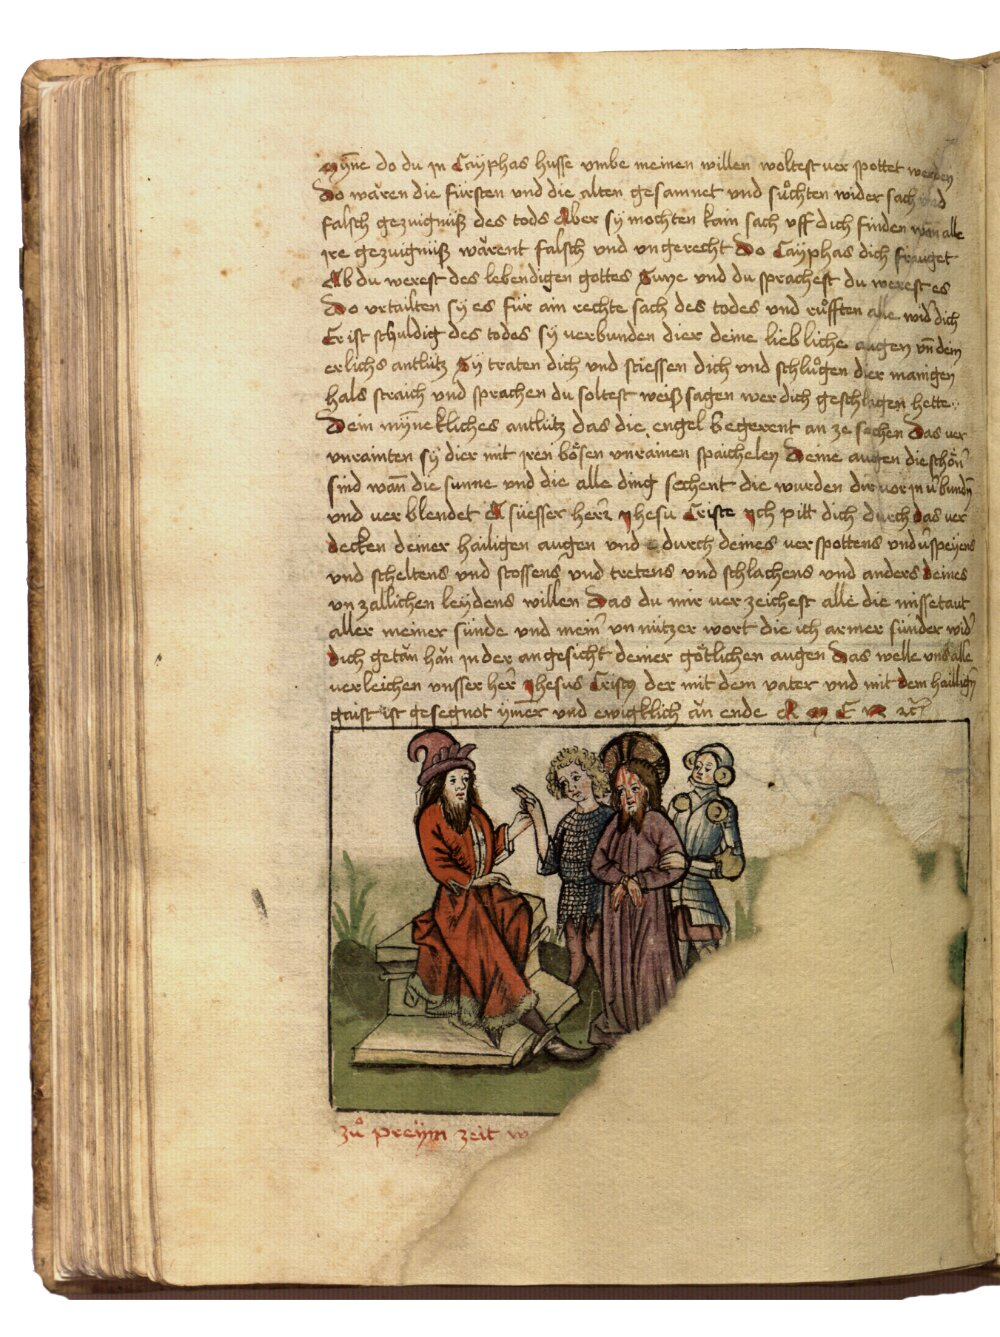 mȳne do du jn Cayphas husse vmbe meinen willen woltest ver spottet werden
Do wären die fürsten vnd die alten gesamnet vnd sůchten wider sach vnd
falsch gezuigniß des tods Aber sy mochten kain sach vff dich finden wan̄ alle
jre gezuigniß wärent falsch vnd vngerecht Do Cayphas dich frauget
Ab du werest des lebendigen gottes Sune vnd du sprachest du werest es
Do vrtailten sy es für ain rechte sach des todes vnd růfften alle wid' dich
Er ist schuldig des todes sy verbunden dier deine liebliche augen vn̄ dein
erlichs antlütz Sy traten dich vnd stiessen dich vnd schlůgen dier manigen
hals straich vnd sprachen du soltest weissagen wer dich geschlagen hette
Dein mȳnekliches antlütz das die engel begerent an ze sechen Das ver
vnrainten sy dier mit jren bösen vnrainen spaichelen Deine augen die schön'
sind wan̄ die sunne vnd die alle ding sechent die wurden dir vor jn v'bunden
vnd ver blendet A süesser herr Jhesu Criste Jch pitt dich durch das ver
decken deiner hailigen augen vnd durch deines verspottens vnd v'speyens
vnd scheltens vnd stossens vnd tretens vnd schlachens vnd anders deines
vnzallichen leydens willen Das du mir verzeichest alle die missetaut
aller meiner sünde vnd mein' vnnützer wort die ich armer sünder wid'
dich getān hān jn der angesicht deiner götlichen augen Das welle vns alle
verleichen vnsser her̄ Jhesus Cristus der mit dem vater vnd mit dem hailligen
gaist ist gesegnot ym̄er vnd ewigklich ān ende A M E N
zů preym zeit